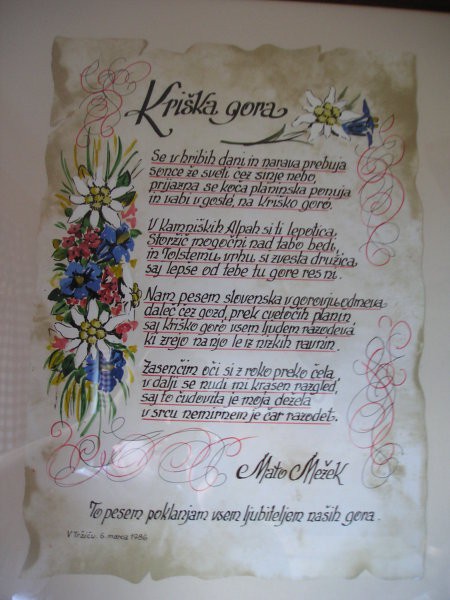 Kriška gora
Se v hribih dani in narava prebuja
sonce že sveti čez sinje nebo,
prijazna se koča planinska ponuja
in vabi v goste, na Kriško goro.
V Kamniških Alpah si ti lepotica,
Storžič mogočni nad tabo bedi,
in Tolstemu vrhu si zvesta družica,
saj lepše od tebe tu gore res ni.
Nam pesem slovenska v gorovju odmeva
daleč čez gozd, prek cvetočih planin
saj kriško goro vsem ljudem razodeva
ki zrejo na njo le iz nizkih ravnin.
Zasenčim oči si z roko preko čela,
v dalji se nudi mi krasen razgled,
saj to čudovita je moja dežela
v srcu nemirnem je čar razodet.
Mato Mežek
To pesem poklanjam vsem ljubiteljem naših gora.
V Tržiču, 6. marca 1986